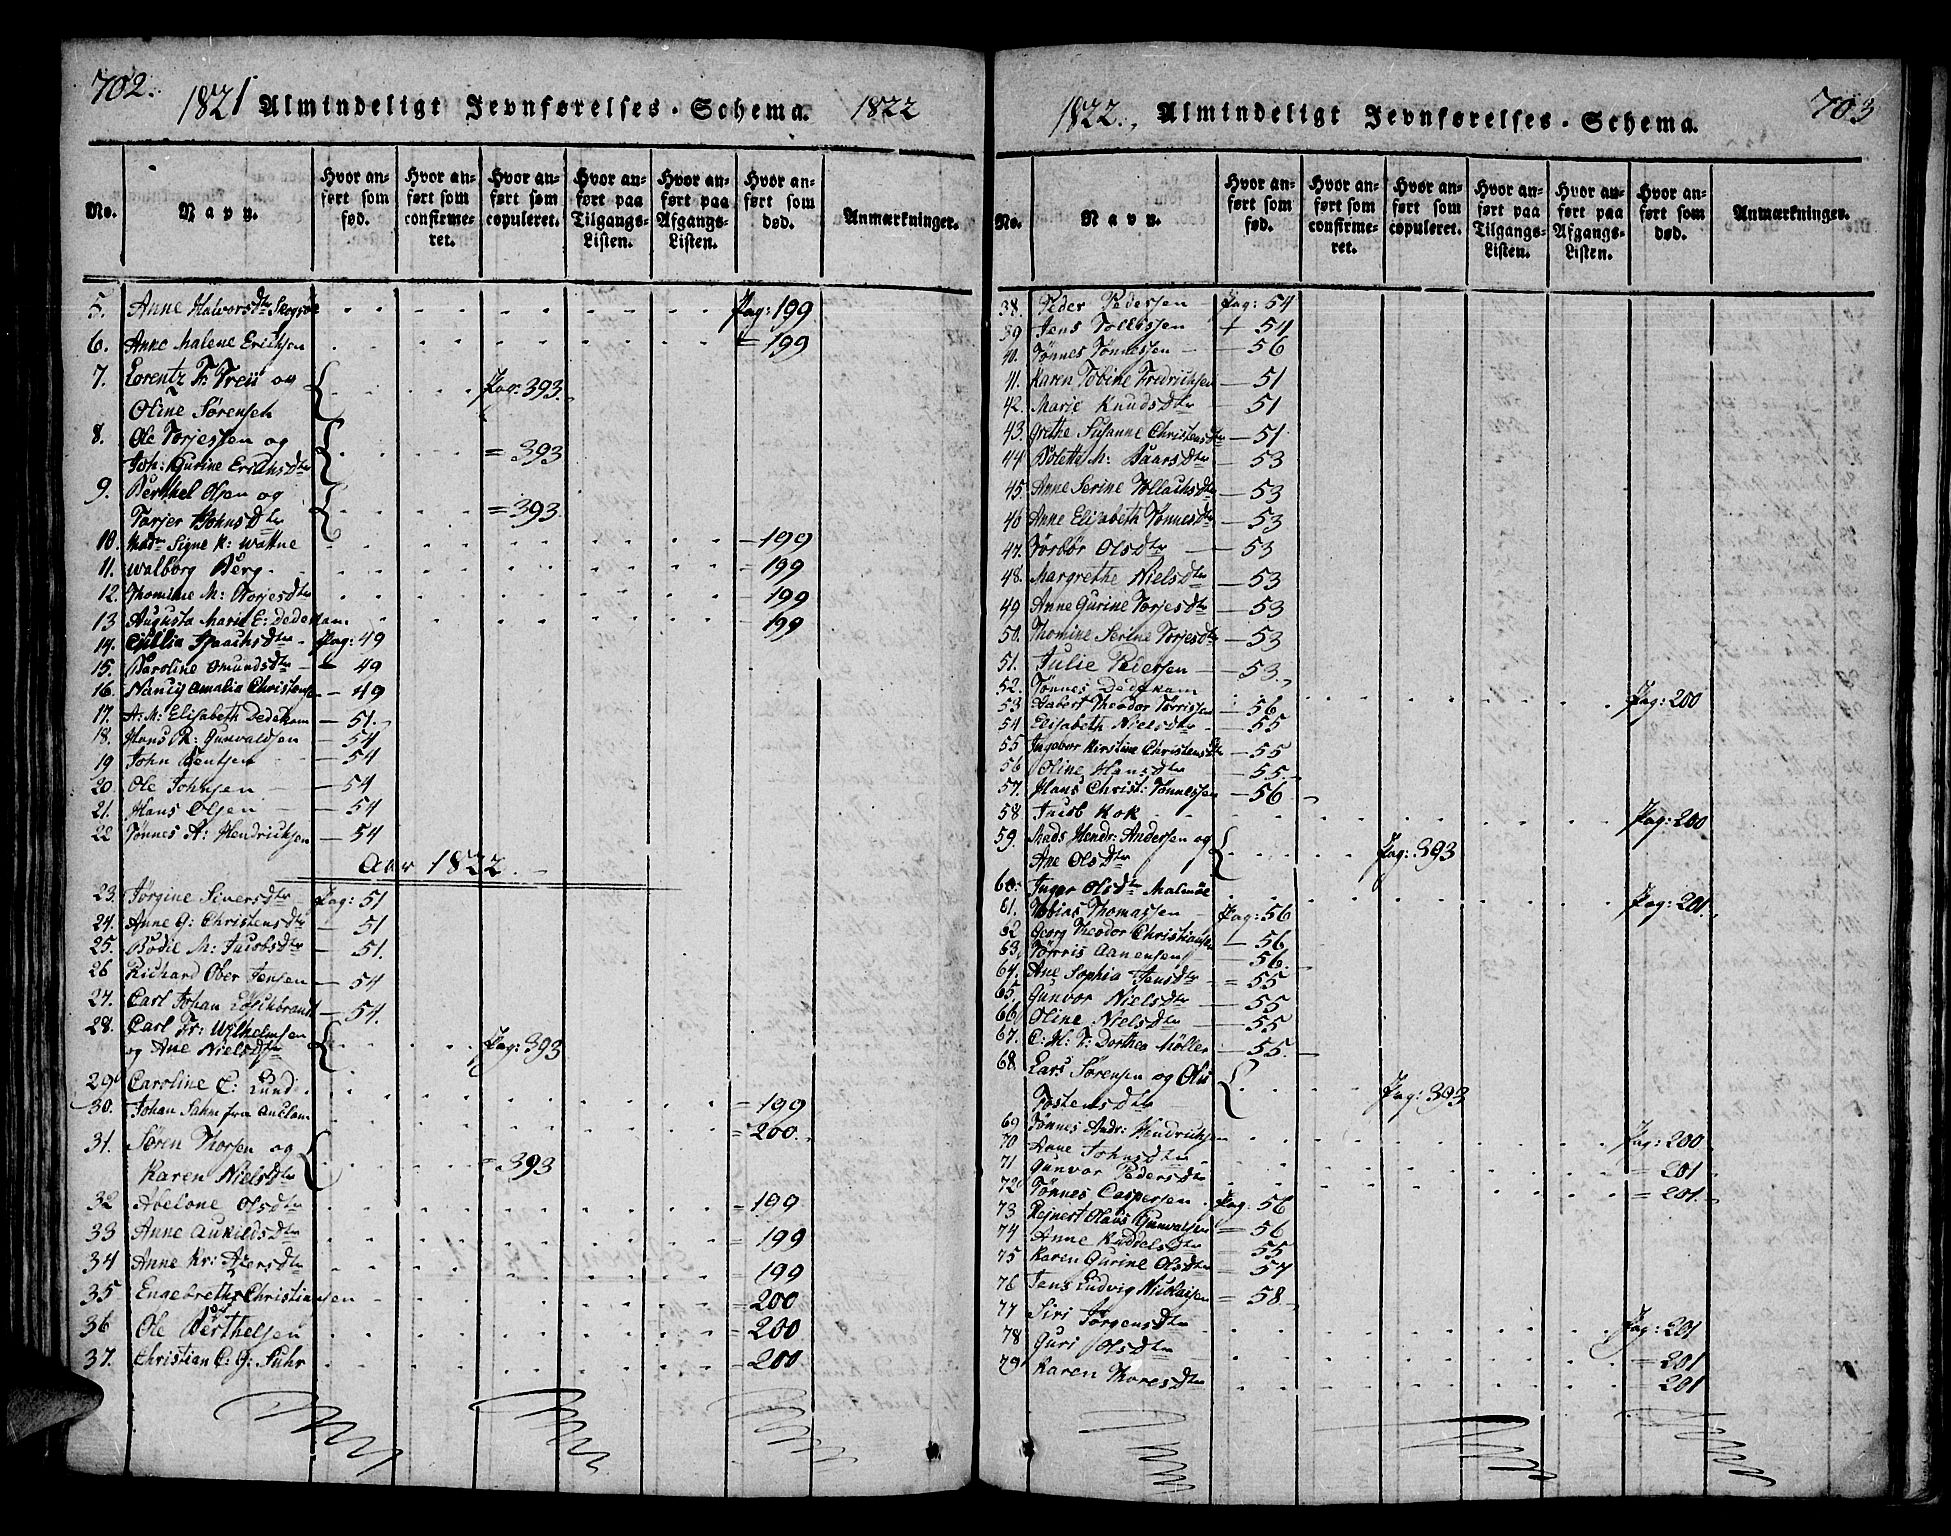 702.
1821 Almindeligt Jevnførelses-Schema. 1822
No. Navn. Hvor anført som fød. Hvor anført som confirmeret. Hvor anført som copuleret. Hvor anført paa Tilgangs-Listen. Hvor anført paa Afgangs-Listen. Hvor anført som død. Anmærkninger.
5. Anne Halvorsdtr Pag: 199
6. Anne Malene Erichsen = 199
7. Lorentz Fr: Treü og
Oline Sørensen Pag: 393.
8. Ole Torjessen og
Joh: Gurine Erichsdtr = 393
9. Berthel Olsen og
Torjer Johnsdtr = 393.
10. Madm Signe K: Wattne — 199
11. Walborg Berg = 199
12. Thomine M: Torjesdtr = 199
13 Augusta Marie E: Dedekam = 199
14. Isaachsdtr Pag: 49
15. Caroline Omundsdtr — 49
16. Nancy Amalia Christense — 49
17. A: M: Elisabeth Dedekam — 51.
18. Hans R: Gunvaldsen — 54
19 John Bentsen — 54
20. Ole Johnsen — 54
21. Hans Olsen — 54
22 Tønnes A: Hendrichsen — 54
Aar 1822.
23. Jørgine Siversdtr Pag: 51
24. Anne G: Christensdtr — 51
25. Bodil M: Jacobsdtr — 51.
26 Richard Ober Jensen — 54
27. Carl Johan — 54.
28. Carl Fr: Wilhelmsen
og Ane Nielsdtr Pag: 393
29 Caroline C: Lund = 199
30. Johan Sahm fra Anclam = 200.
31. Søren Thorsen og
Karen Nielsdtr = 393
32 Abelone Olsdtr = 199
33 Anne Aukildsdtr = 199
34 Anne Kr: Atersdtr = 199
35 Engebreth Christiansen = 200
36 Ole Berthelsen = 200
37. Christian C: G: Suhr = 200
1822. Almindeligt Jevnførelses-Schema. 703
No. Navn. Hvor anført som fød. Hvor anført som confirmeret. Hvor anført som copuleret. Hvor anført paa Tilgangs-Listen. Hvor anført paa Afgangs-Listen. Hvor anført som død. Anmærkninger.
38. Peder Pedersen Pag: 54
39 Jens Tollefssen + 54
40. Tønnes Tønnessen — 56
41. Karen Tobine Fredrichsen — 51
42. Marie Knudsdtr — 51
43. Grethe Susanne Christensdtr — 51
44 Bolette M: Baarsdtr — 53
45. Anne Serine Tollachsdtr — 53
46 Anne Elisabeth Tønnesdtr — 53
47. Torbør Olsdtr — 53
48. Margrethe Nielsdtr — 53
49 Anne Gurine Torjesdtr — 53
50. Thomine Serine Torjesdtr — 53
51. Julie Pedersen — 53.
52. Tønnes Dedekam Pag: 200
53 Gabert Theodor Tørrissen — 56
54 Elisabeth Nielsdtr — 55
55 Ingebor Kirstine Christensdtr — 55
56 Oline Hansdtr — 55
57. Hans Christ: Tønnessen — 56
58 Jacob Kok Pag: 200
59. Mads Hendr: Andersen og
Ane Olsdtr Pag: 393
60. Inger Olsdtr Malmöe Pag: 201.
61. Tobias Thomassen Pag: 56
62 Georg Theodor Christiansen — 56
63 Tørris Aanensen — 56
64. Ane Sophia Jensdtr = 55
65. Gunvor Nielsdtr — 55
66 Oline Nielsdtr — 55
67. C: M: F: Dorthea Møller — 55.
68 Lars Sørensen og Olu
Tostensdtr Pag: 393
69 Tønnes Andr: Hendrichsen Pag: 200
70 Anne Johnsdtr = 201
71 Gunvor Pedersdtr = 201.
72 Tønnes Caspersen Pag: 56
73 Rejnert Olaus Gunvaldsen = 56
74 Anne = 55
75 Karen Gurine Olsdtr = 57
76 Jens Ludvig Nicolaisen = 58
77 Siri Jørgensdtr Pag: 201
78 Guri Olsdtr = 201
79 Karen Thoresdtr 201